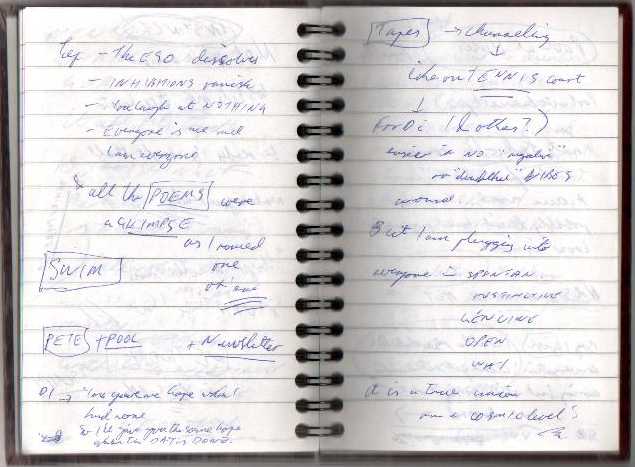 - The EGO dissolves
- INHIBITIONS vanish
- You laugh at NOTHING
- Everyone is me and
I am everyone
all the POEMS were
a GLIMPSE
as I roamed
one
of one
SWIM
PETE + POOL + Newsletter
DI → "You gave me hope when I
had none
So I'll give you the same hope
when the DAY IS DONE.
Tapes → Channeling
↓
like on TENNIS court
↓
For Di (& others?)
easier if NO "negative"
or "doubtful" VIBES
around.
But I am plugging into
everyone is SPONTAN.
INSTINCTIVE
GENUINE
OPEN
WAY
It is a true union
on a COSMIC level!